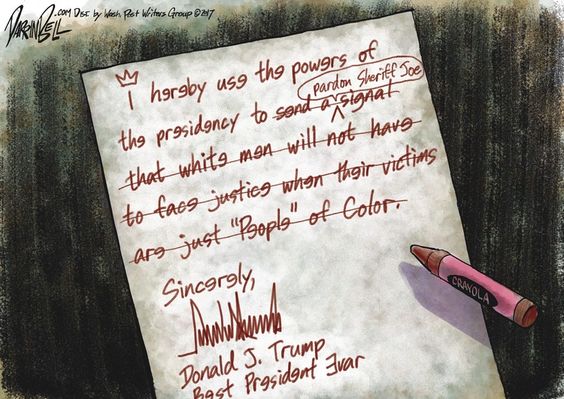 DARRINBELL.COM Dist by Wash Post Writers Group ©2017
I hereby use the powers of
pardon Sheriff Joe
the presidency to send a signal
that white men will not have
to face justice when their victims
are just "People" of Color.
Sincerely,
Donald J. Trump
Best President Evar
CRAYOLA